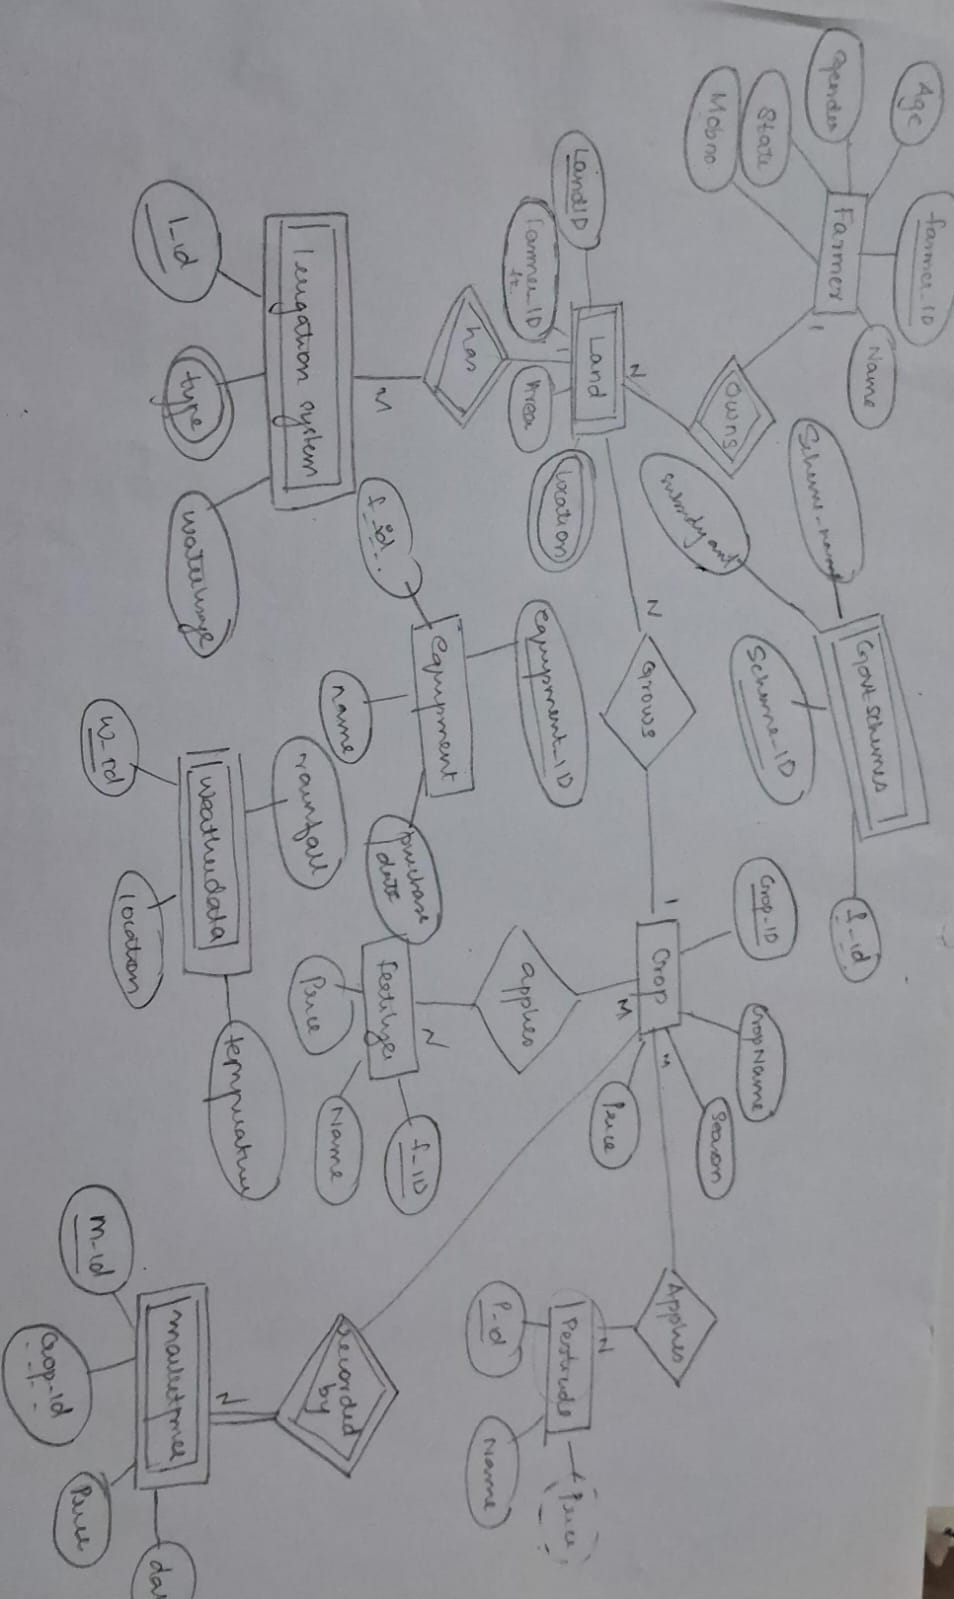 Age
Gender
State
Mobno
Farmer
farmer_ID
Name
1
Owns
N
LandID
farmer_ID
Land
Area
location
1
has
M
Irrigation system
I_id
type
waterusage
Scheme_name
subsidy amt
Govt Schemes
Scheme_ID
f_id
N
Grows
1
Crop
Crop_ID
CropName
Season
Price
M
applies
N
fertilizer
Price
Name
f_ID
equipment
f_id
equipment_ID
name
purchase
date
Weatherdata
W_id
rainfall
location
temperature
M
Applies
N
Pesticide
P_id
Name
Price
recorded
by
N
marketprice
m_id
Crop_id
Price